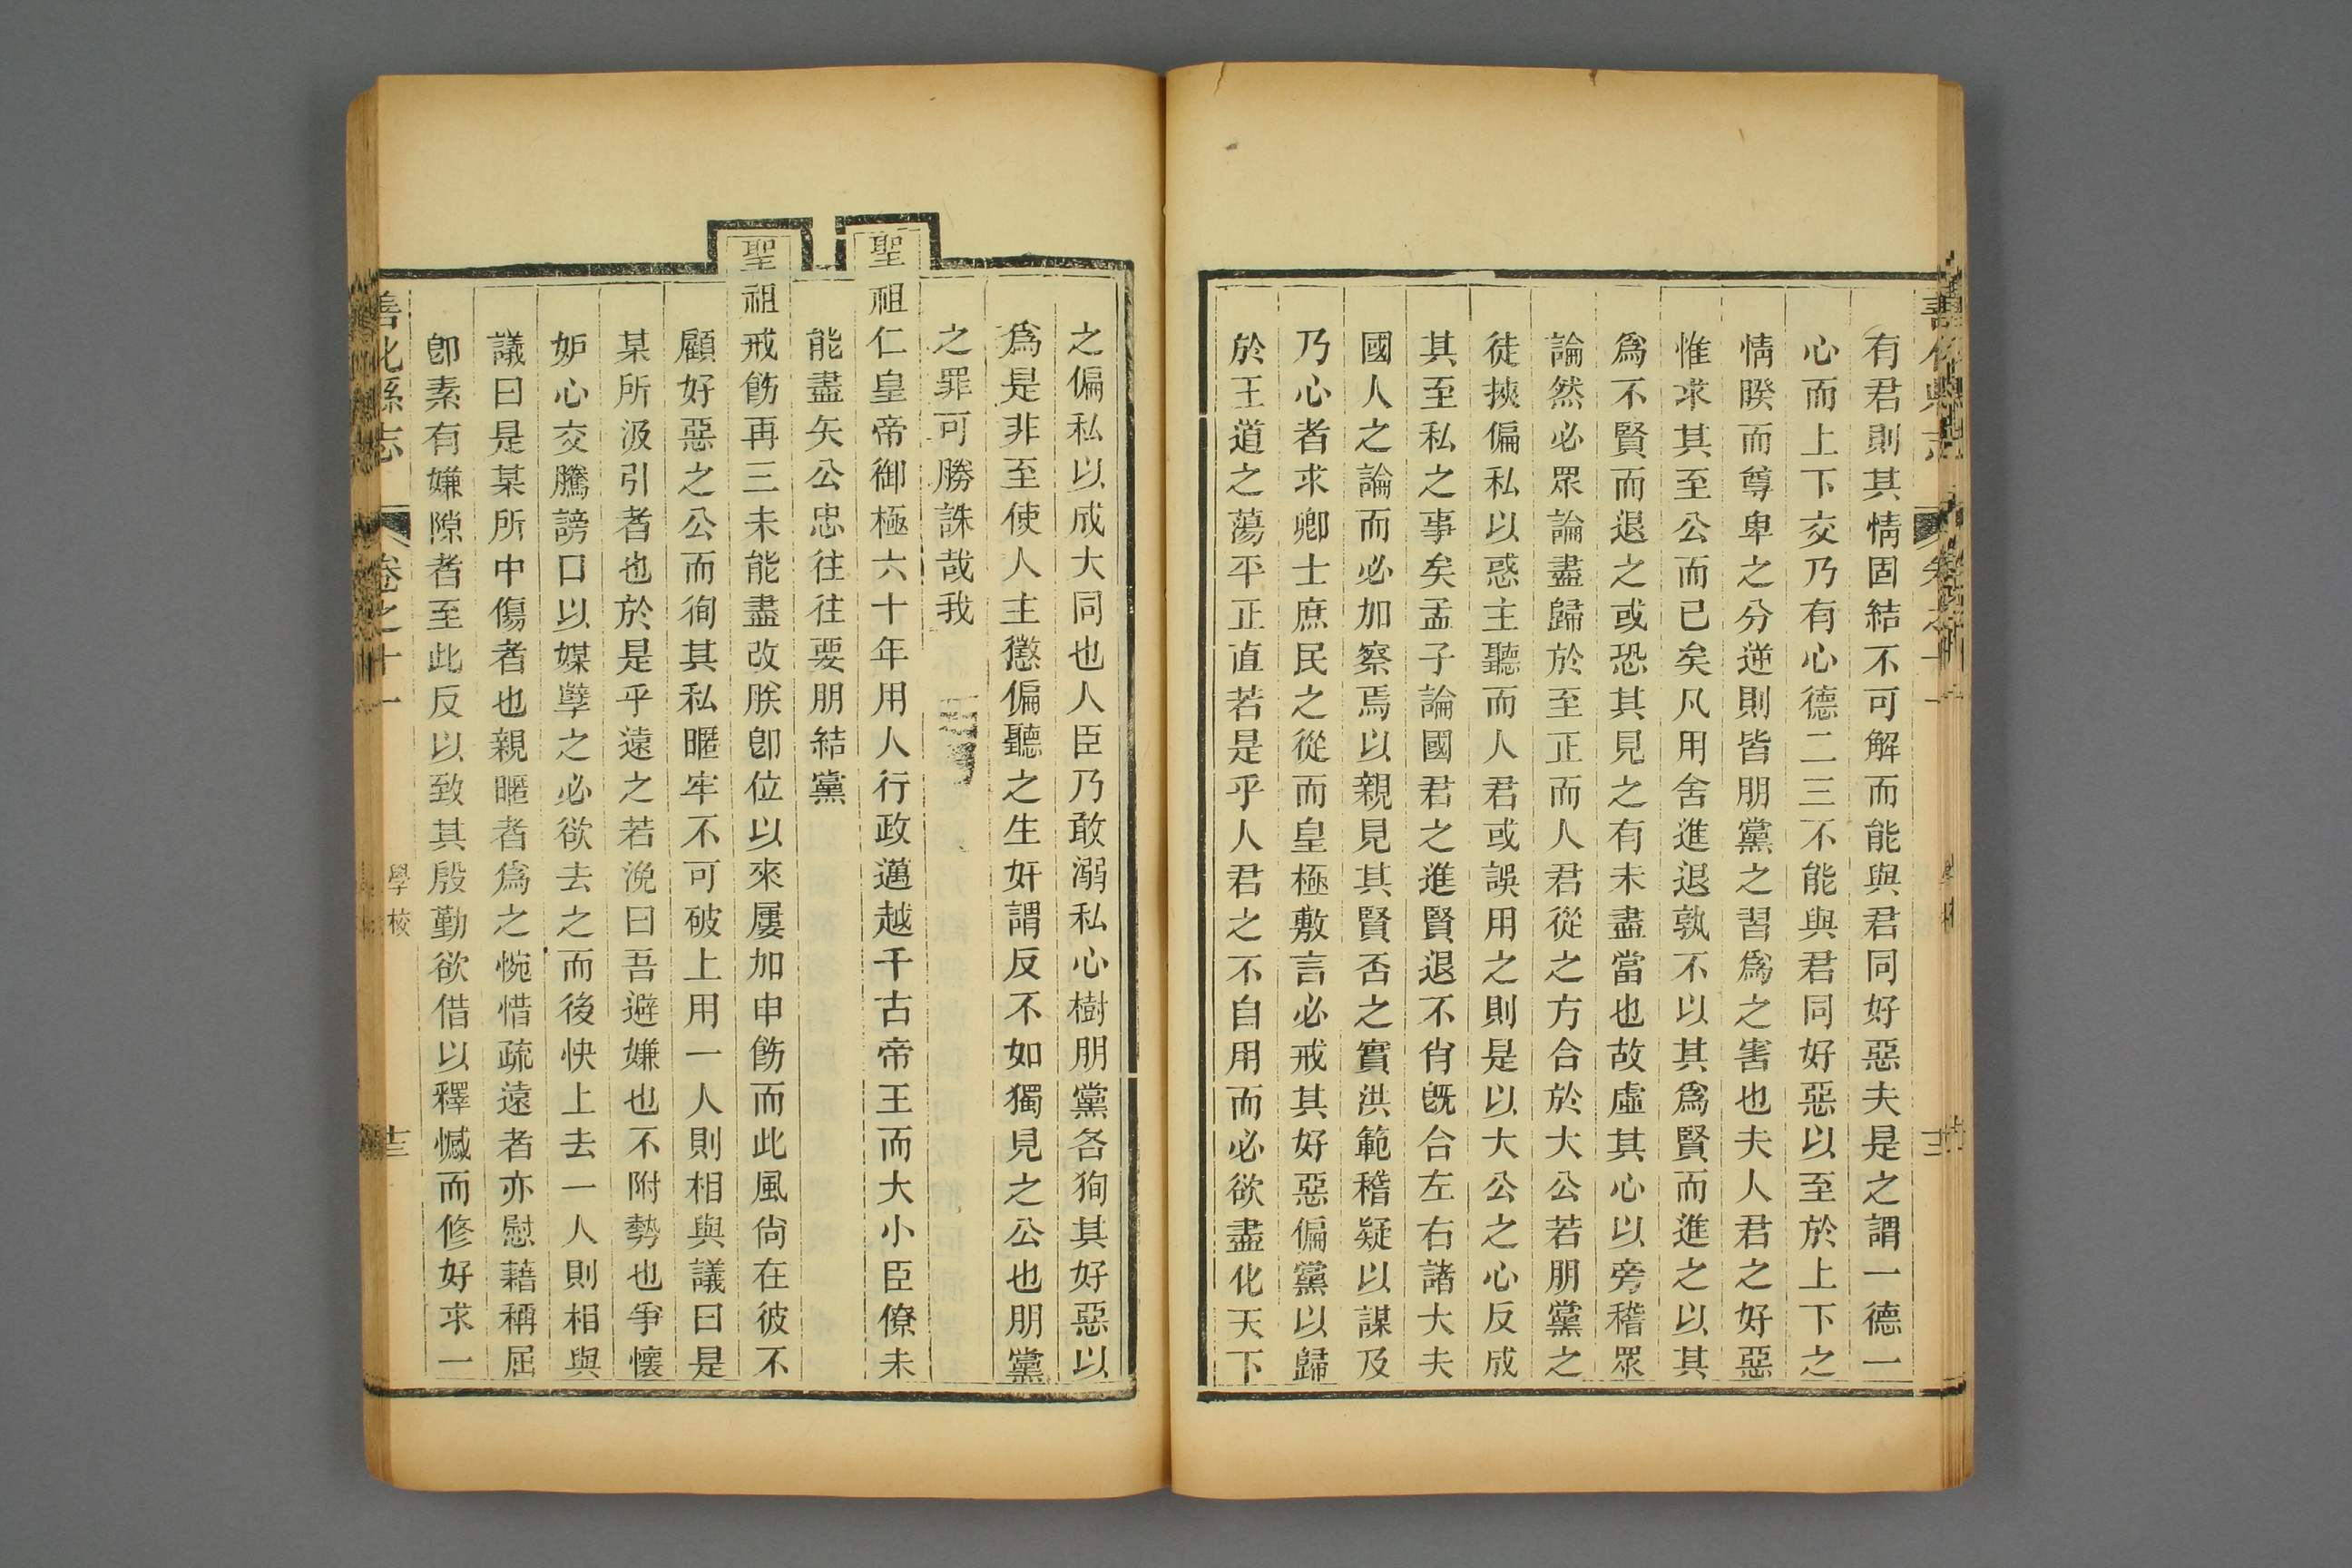 有君則其情固結不可解而能與君同好惡夫是之謂一德一
心而上下交乃有心德二三不能與君同好惡以至於上下之
情睽而尊卑之分逆則皆朋黨之習爲之害也夫人君之好惡
惟求其至公而已矣凡用舍進退孰不以其爲賢而進之以其
爲不賢而退之或恐其見之有未盡當也故虛其心以旁稽眾
論然必眾論盡歸於至正而人君從之方合於大公若朋黨之
徒挾偏私以惑主聽而人君或誤用之則是以大公之心反成
其至私之事矣孟子論國君之進賢退不肖旣合左右諸大夫
國人之論而必加察焉以親見其賢否之實洪範稽疑以謀及
乃心者求卿士庶民之從而皇極敷言必戒其好惡偏黨以歸
於王道之蕩平正直若是乎人君之不自用而必欲盡化天下
之偏私以成大同也人臣乃敢溺私心樹朋黨各狥其好惡以
爲是非至使人主懲偏聽之生奸謂反不如獨見之公也朋黨
之罪可勝誅哉我
聖祖仁皇帝御極六十年用人行政邁越千古帝王而大小臣僚未
能盡矢公忠往往要朋結黨
聖祖戒飭再三未能盡改朕卽位以來屢加申飭而此風尙在彼不
顧好惡之公而徇其私暱牢不可破上用一人則相與議曰是
某所汲引者也於是乎遠之若浼曰吾避嫌也不附勢也爭懷
妒心交騰謗口以媒孽之必欲去之而後快上去一人則相與
議曰是某所中傷者也親暱者爲之惋惜疏遠者亦慰藉稱屈
卽素有嫌隙者至此反以致其殷勤欲借以釋憾而修好求一
善化縣志 卷之十一 學校 十三